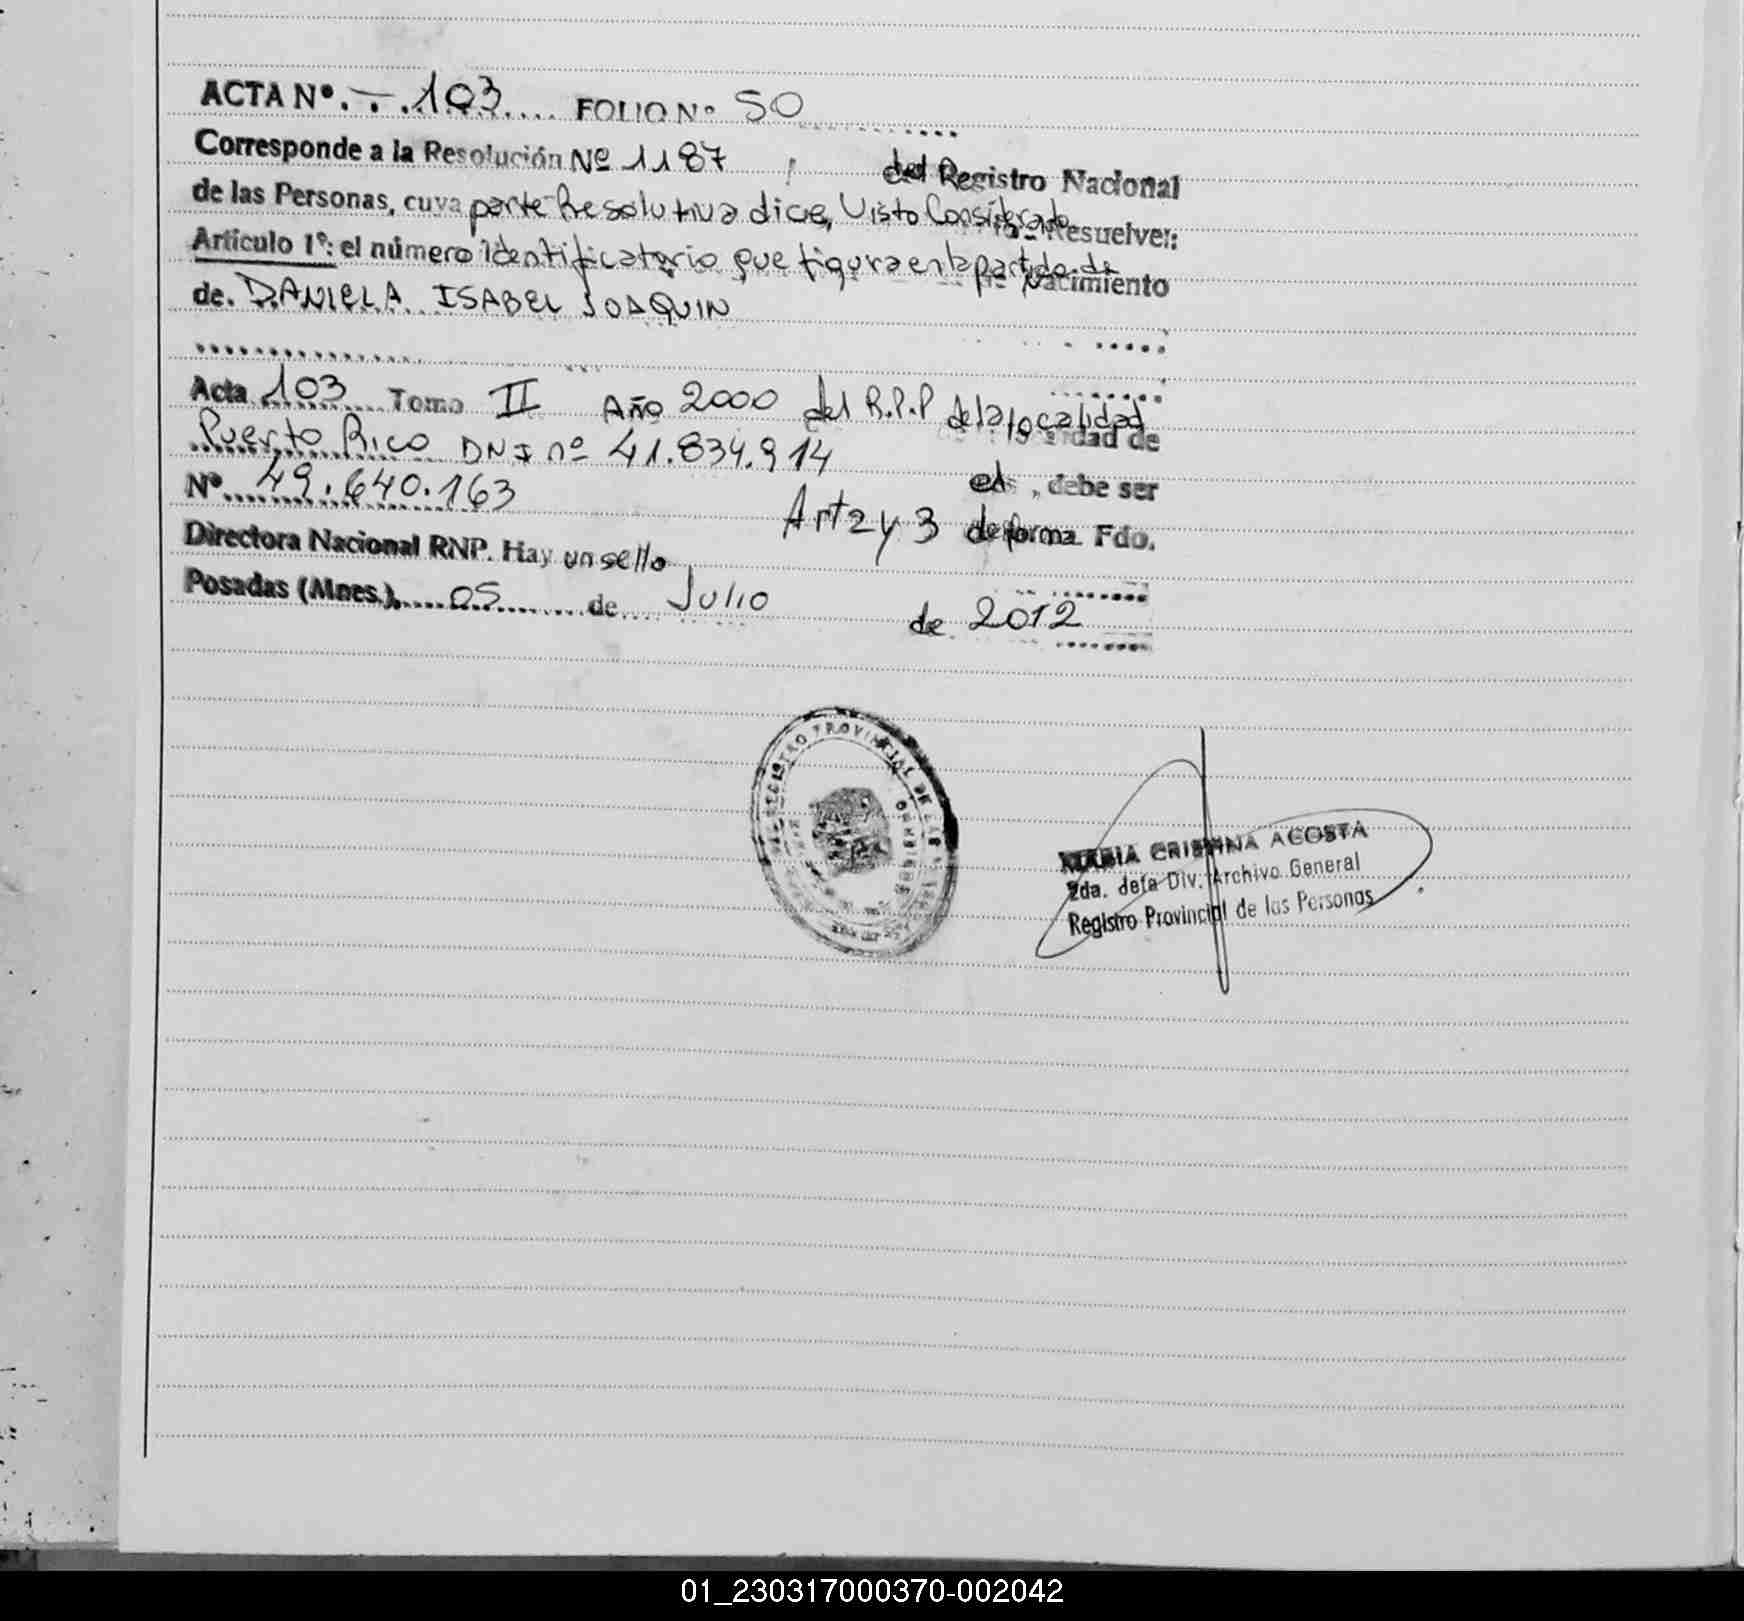 ACTA Nº. - . 103 .... FOLIO Nº 50
Corresponde a la Resolución Nº 1187 del Registro Nacional
de las Personas, cuya parte Resolutiva dice, Visto Considerado Resuelve:
Artículo 1º: el número identificatorio que figura en la partida de nacimiento
de. DANIELA ISABEL JOAQUIN
Acta 103 Tomo II Año 2000 del R.P.P de la localidad de
Puerto Rico DNI nº 41.834.914
el , debe ser
Nº 49.640.163
Art 2 y 3 de forma Fdo.
Directora Nacional RNP. Hay un sello
Posadas (Mnes.), 05 de Julio de 2012
REGISTRO PROVINCIAL DE LAS
MARIA CRISTINA ACOSTA
2da. Jefa Div. Archivo General
Registro Provincial de las Personas
01_230317000370-002042